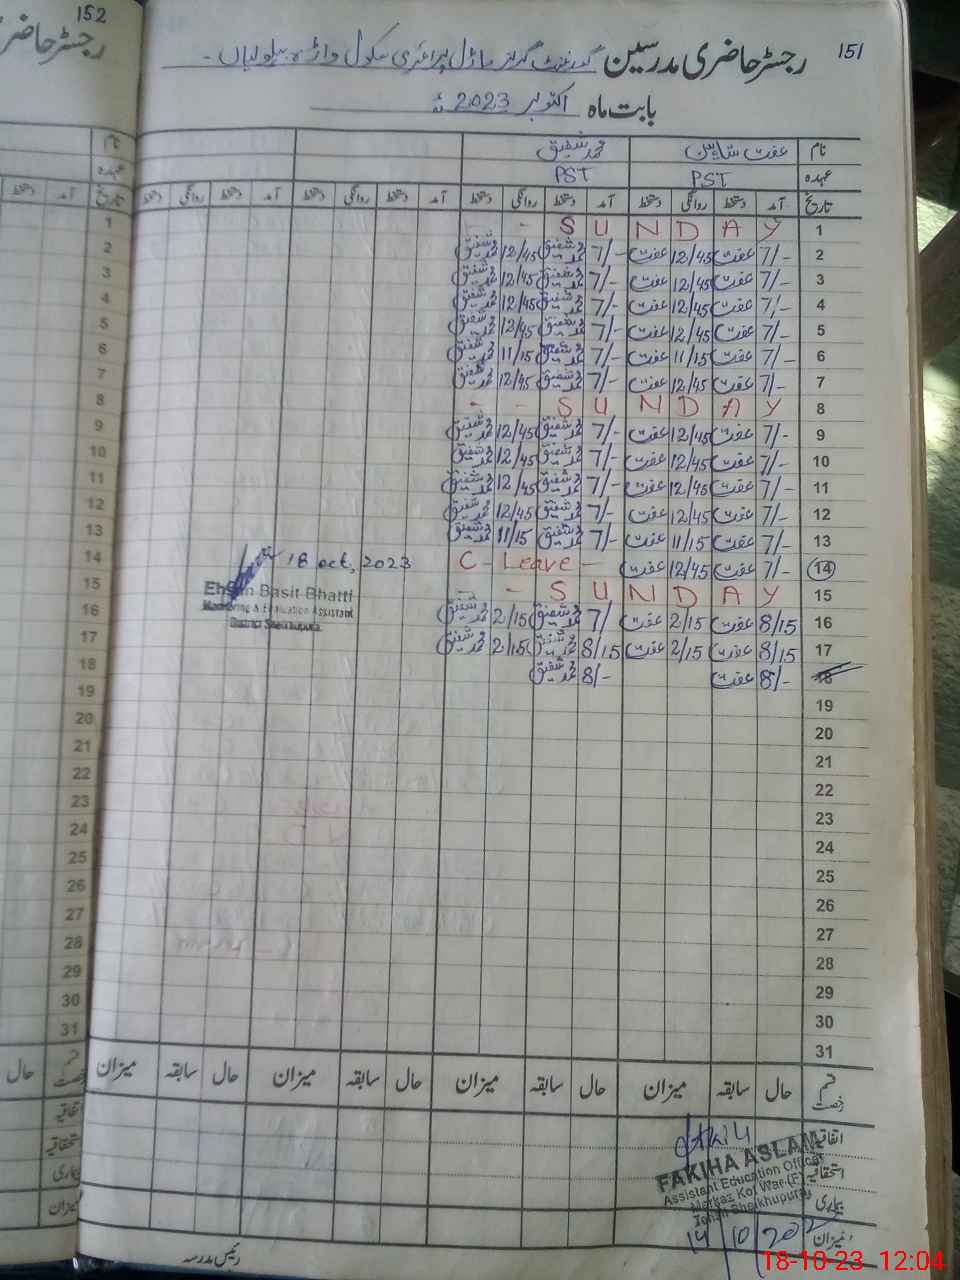 152
رجسٹر حاضری
151
رجسٹر حاضری مدرسین گورنمنٹ گرلز ماڈل پرائمری سکول واڑہ
بابت ماہ اکتوبر 2023ء
نام عفت شاہین محمد شفیق
عہدہ PST PST
تاریخ آمد دستخط روانگی دستخط آمد دستخط روانگی دستخط آمد دستخط روانگی دستخط آمد دستخط روانگی دستخط
1 SUNDAY - -
2 7/- عفت 12/45 عفت 7/- محمد شفیق 12/45 محمد شفیق
3 7/- عفت 12/45 عفت 7/- محمد شفیق 12/45 محمد شفیق
4 7/- عفت 12/45 عفت 7/- محمد شفیق 12/45 محمد شفیق
5 7/- عفت 12/45 عفت 7/- محمد شفیق 12/45 محمد شفیق
6 7/- عفت 11/15 عفت 7/- محمد شفیق 11/15 محمد شفیق
7 7/- عفت 12/45 عفت 7/- محمد شفیق 12/45 محمد شفیق
8 SUNDAY - -
9 7/- عفت 12/45 عفت 7/- محمد شفیق 12/45 محمد شفیق
10 7/- عفت 12/45 عفت 7/- محمد شفیق 12/45 محمد شفیق
11 7/- عفت 12/45 عفت 7/- محمد شفیق 12/45 محمد شفیق
12 7/- عفت 12/45 عفت 7/- محمد شفیق 12/45 محمد شفیق
13 7/- عفت 11/15 عفت 7/- محمد شفیق 11/15 محمد شفیق
14 7/- عفت 12/45 عفت C-Leave-
18 oct, 2023
Ehsan Basit Bhatti
Monitoring & Evaluation Assistant
District Sheikhupura
15 SUNDAY - -
16 8/15 عفت 2/15 عفت 7/ محمد شفیق 2/15 محمد شفیق
17 8/15 عفت 2/15 عفت 8/15 محمد شفیق 2/15 محمد شفیق
18 8/- عفت 8/- محمد شفیق
19
20
21
22
23
24
25
26
27
28
29
30
31
قسم رخصت حال سابقہ میزان حال سابقہ میزان حال سابقہ میزان حال سابقہ میزان
اتفاقیہ
استحقاقیہ
بیماری
میزان
FAKIHA ASLAM
Assistant Education Officer
Markaz Kot War (F)
Tehsil Sheikhupura
14/10/202
رئیس مدرسہ
نام
عہدہ
تاریخ آمد دستخط
1
2
3
4
5
6
7
8
9
10
11
12
13
14
15
16
17
18
19
20
21
22
23
24
25
26
27
28
29
30
31
قسم رخصت حال
اتفاقیہ
استحقاقیہ
بیماری
میزان
18-10-23 12:04